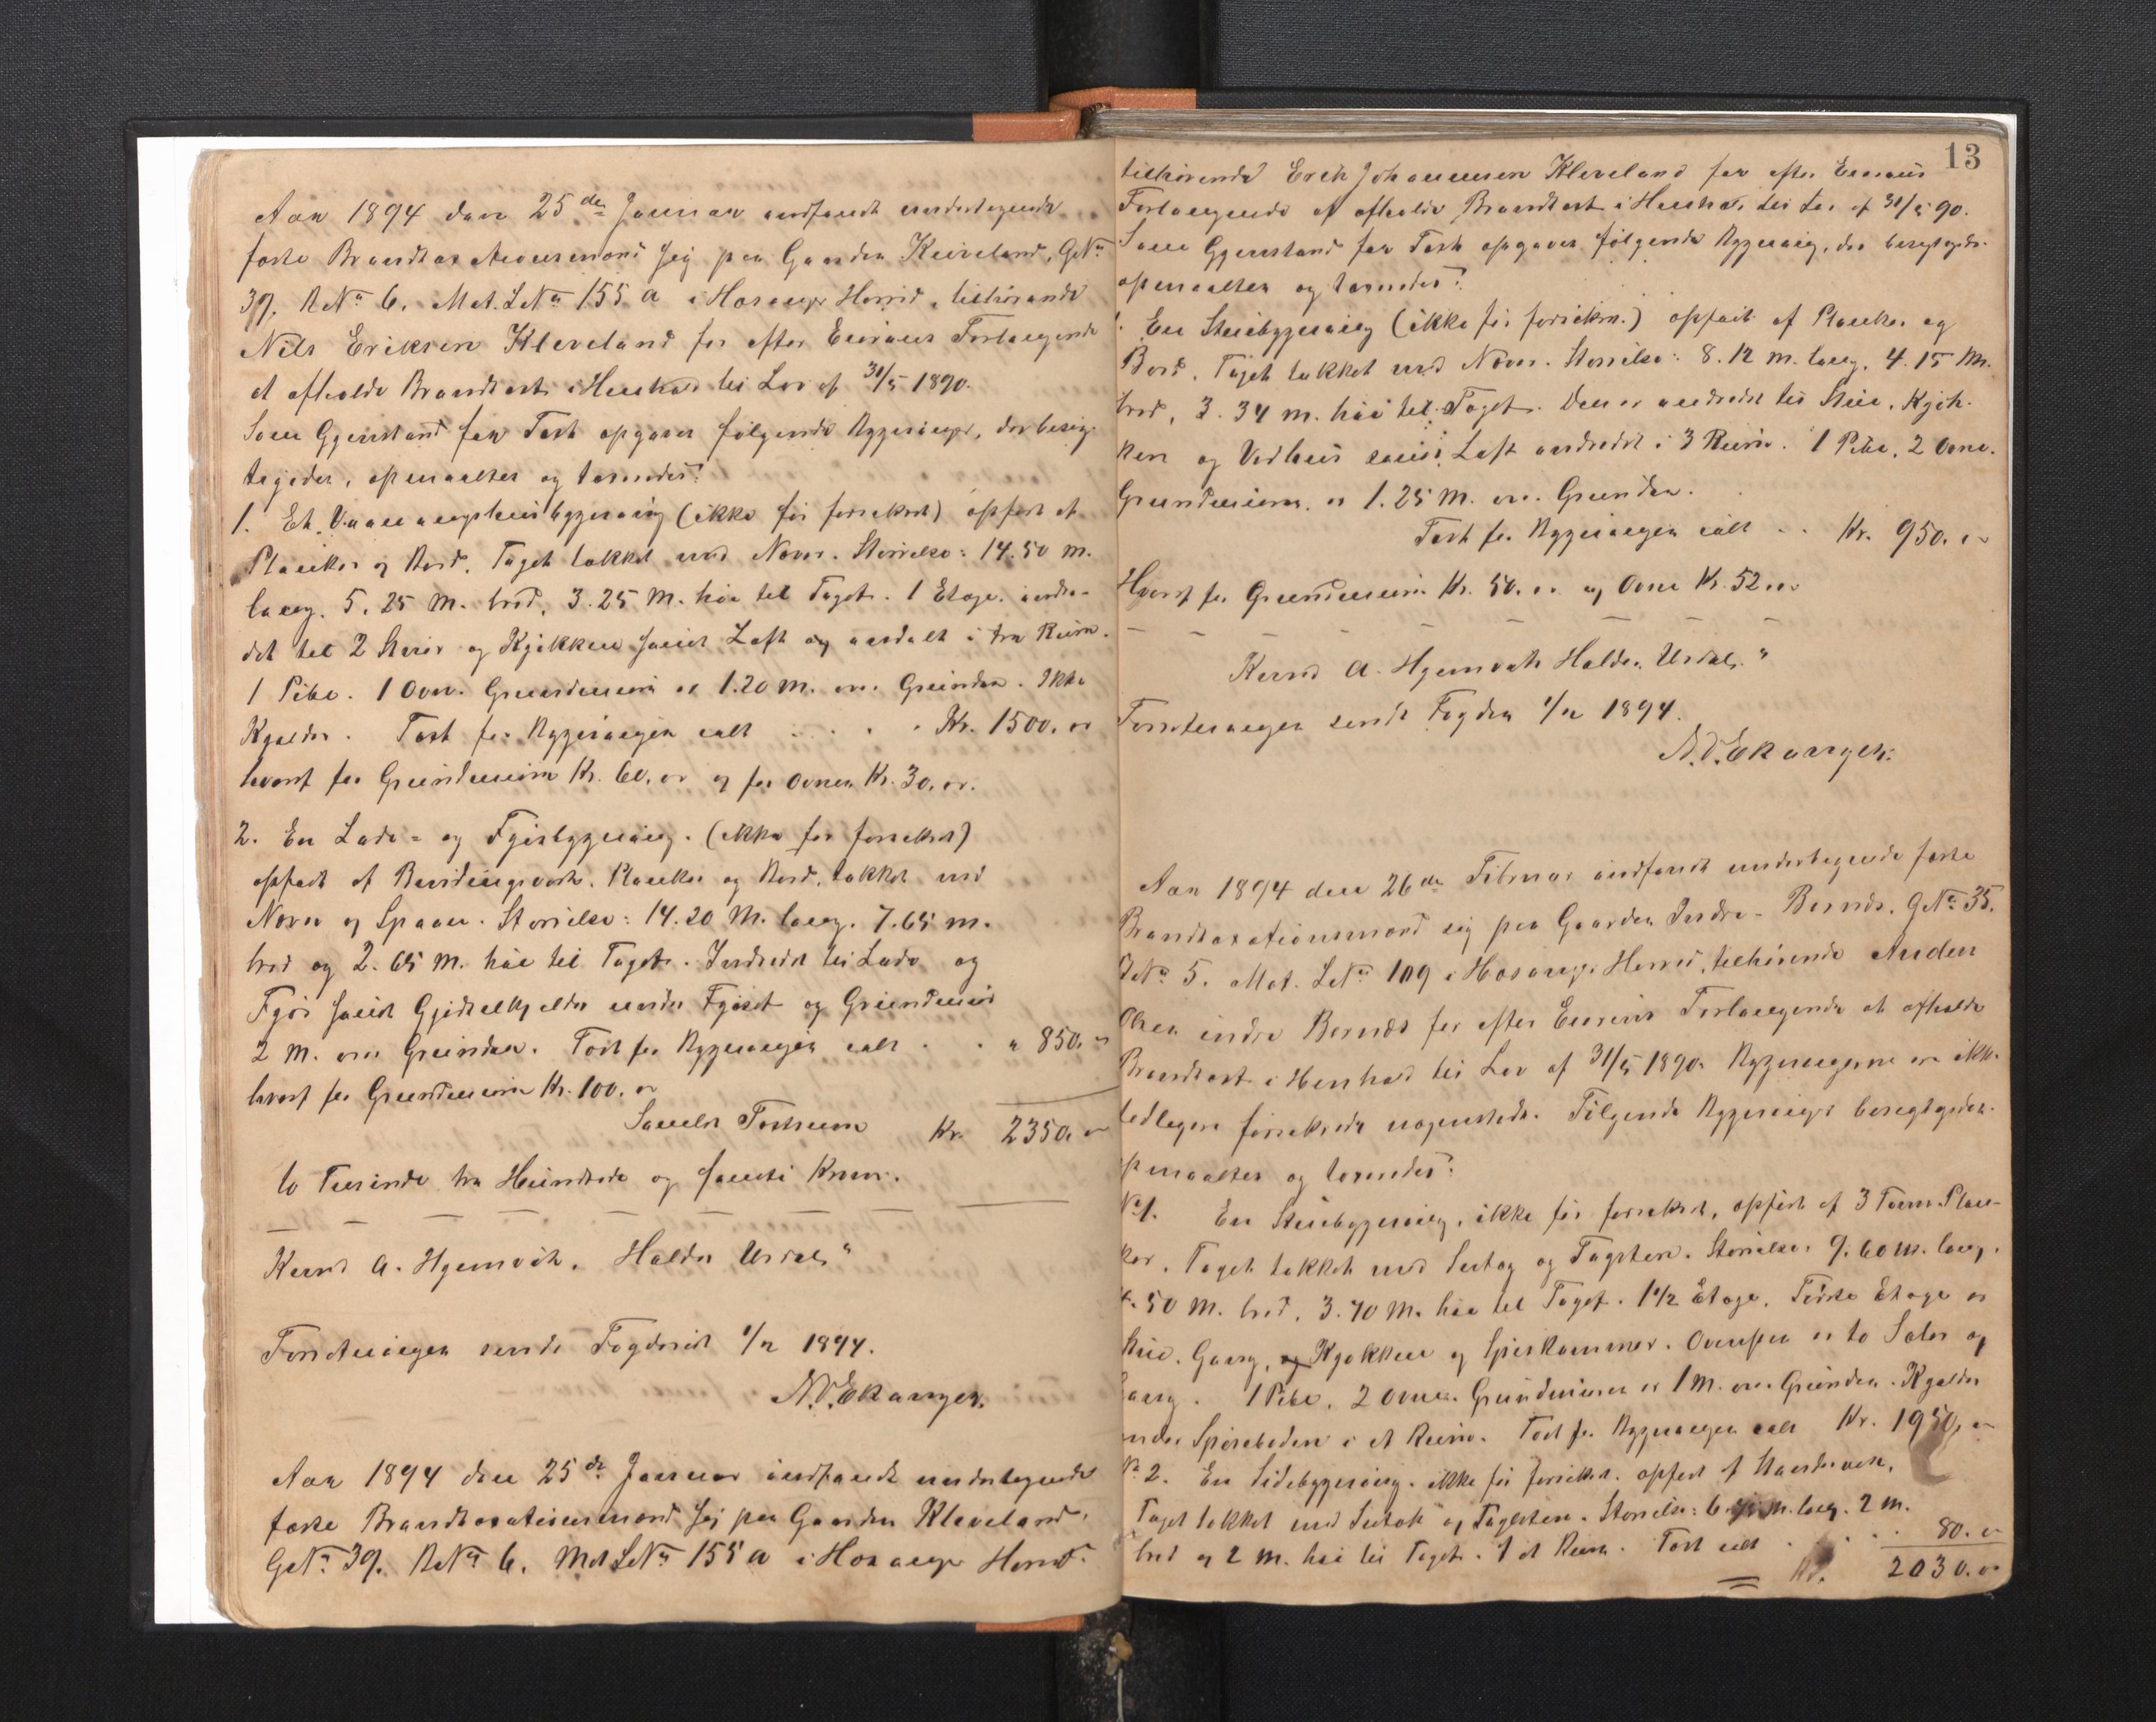 Aar 1894 den 25de Januar indfandt undertegnede
faste Brandtaxationsmænd sig paa Gaarden Kleiveland, GNo
39. BNo 6. Mat. LNo 155 a i Hosanger Herred, tilhørende
Nils Eriksen Kleveland for efter Eierens Forlangende
at afholde Brandtaxt i Henhold til Lov af 31/5 1890.
Som Gjenstand for Taxt opgaves følgende Bygninger, der besig-
tigedes, opmaaltes og taxeredes:
1. Et Vaaningshusbygning (ikke før forsikret) opført af
Planker og Bord. Taget tækket med Næver. Størrelse: 14.50 m.
lang. 5.25 M. bred, 3.25 M. høi til Taget. 1 Etage. indre-
det til 2 Stuer og Kjøkken samt Loft og inddelt i tre Rum.
1 Pibe. 1 Ovn. Grundmuren er 1.20 M. over Grunden. Ikke
Kjelder. Taxt for Bygningen ialt . . . . Kr. 1500. 00
hvoraf for Grundmuren Kr. 60. 00 og for Ovnen Kr. 30. 00.
2. En Lade- og Fjøsbygning. (ikke før forsikret)
opført af Bindingsverk. Planker og Bord, tækket med
Næver og Spaan. Størrelse: 14.20 M. lang. 7.65 m.
bred og 2.65 M. høi til Taget. Indredet til Lade og
Fjøs samt Gjødselkjelder under Fjøset og Grundmur
2 M. over Grunden. Taxt for Bygningen ialt . . " 850. 00
hvoraf for Grundmuren Kr. 100. 00
Samlet Taxtsum Kr. 2350. 00
to Tusinde tre Hundrede og femti Kroner.
Knud A. Hjemvik. Haldor Urdal
Forretningen sendt Fogderiet 1/2 1894.
N. O. Ekanger.
Aar 1894 den 25de Januar indfandt undertegnede
faste Brandtaxationsmænd sig paa Gaarden Kleveland,
GNo 39. BNo 6. Mat LNo 155 a i Hosanger Herred
13
tilhørende Erik Johannesen Kleveland for efter Eierens
Forlangende at afholde Brandtaxt i Henhold til Lov af 31/5 90.
Som Gjenstand for Taxt opgaves følgende Bygning, der besigtigedes
opmaaltes og taxeredes:
1. En Stuebygning (ikke før forsikret.) opført af Planker og
Bord. Taget tækket med Næver. Størrelse: 8.12 m. lang, 4.15 M.
bred, 3.34 m. høi til Taget. Den er indredet til Stue, Kjøk-
ken og Vedhus samt Loft indredet i 3 Rum. 1 Pibe, 2 Ovne.
Grundmuren er 1.25 M. over Grunden.
Taxt for Bygningen ialt . . Kr. 950. 00
Hvoraf for Grundmuren Kr. 50. 00 og Ovne Kr. 52.00
Knud A. Hjemvik Haldor Urdal
Forretningen sendt Fogden 1/2 1894.
N. O. Ekanger.
Aar 1894 den 26de Februar indfandt undertegnede faste
Brandtaxationsmænd sig paa Gaarden Indre-Bernes. GNo 35.
BNo 5. Mat. LNo 109 i Hosanger Herred, tilhørende Anders
Olsen indre Bernes for efter Eierens Forlangende at afholde
Brandtaxt i Henhold til Lov af 31/5 1890. Bygningerne er ikke
tidligere forsikrede nogensteds. Følgende Bygninger besigtigedes
opmaaltes og taxeredes:
No 1. En Stuebygning, ikke før forsikret, opført af 3 Tom. Plan-
ker. Taget tækket med Sutag og Tagsten. Størrelse: 9.60 m. lang,
50 M. bred, 3.70 M. høi til Taget. 1 1/2 Etage. Første Etage er
Stue. Gang, og Kjøkken og Spiskammer. Ovenpaa er to Saler og
Gang. 1 Pibe, 2 Ovne. Grundmuren er 1 M. over Grunden. Kjelder
under Spiseboden i et Rum. Taxt for Bygningen ialt Kr. 1950. 00
No 2. En Sidebygning. ikke før forsikret. opført af Standerverk.
Taget tækket med Sutak og Tagsten. Størrelse: 6 m. lang. 2 m.
bred og 2 m. høi til Taget. I et Rum. Taxt ialt . . . 80. 00
Kr. 2030. 00